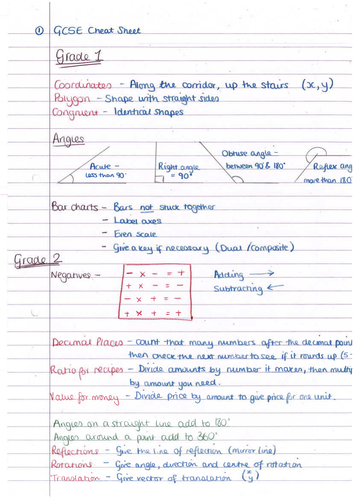 ① GCSE Cheat Sheet
Grade 1
Coordinates - Along the corridor, up the stairs (x,y)
Polygon - Shape with straight sides
Congruent - Identical Shapes
Angles
Acute - less than 90°
Right angle = 90°
Obtuse angle - between 90 & 180°
Reflex ang
more than 180
Bar charts - Bars not stuck together
- Label axes
- Even scale
- Give a key if necessary (Dual / Composite)
Grade 2
Negatives -
- × - = +
+ × - = -
- × + = -
+ × + = +
Adding →
Subtracting ←
Decimal Places - Count that many numbers after the decimal point
then check the next number to see if it rounds up (5
Ratio for recipes - Divide amounts by number it makes, then multip
by amount you need.
Value for money - Divide price by amount to give price for one unit.
Angles on a straight line add to 180°
Angles around a point add to 360°
Reflections - Give the line of reflection (mirror line)
Rotations - Give angle, direction and centre of rotation
Translation - Give vector of translation (x y)